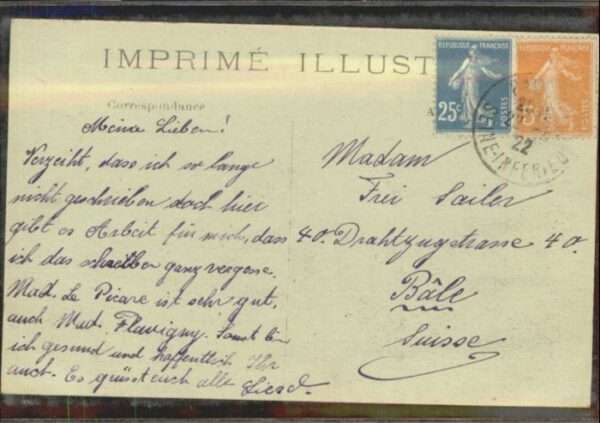 IMPRIMÉ ILLUST
REPUBLIQUE FRANÇAISE
25c POSTES
POSTES
SEINE-INFERIEURE
22
Correspondance
A
Meine Lieben!
Verzeiht, dass ich so lange
nicht geschrieben doch hier
gibt es Arbeit für mich, dass
ich das schreiben ganz vergesse.
Mad. Le Picare ist sehr gut,
auch Mad. Flavigny. Sonst bin
ich gesund und hoffentlich Ihr
auch. Es grüsst euch alle
Madam
Frei Sailer
40. Drahtzugstrasse 40.
Bâle
Suisse